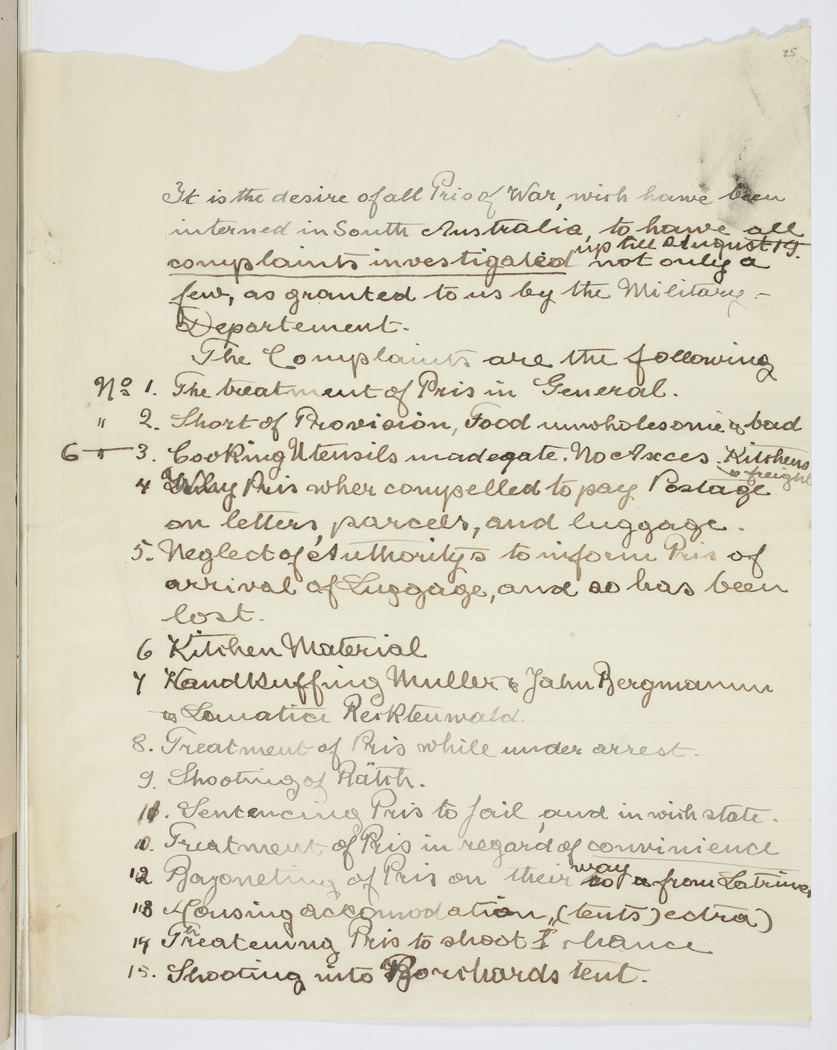 25
It is the desire of all Pris of War, wich hawe been
interned in South Australia, to hawe all
complaints investigated up till August 19. not only a
few, as granted to us by the Military -
Departement.
The Complaints are the following
No 1. The treatment of Pris in General.
" 2. Short of Provision, Food unwholesome & bad
6 " 3. Cooking Utensils inadeqate. No Acces. Kitchens
& freight
4 Why Pris wher compelled to pay Postage
on letters, parcels, and luggage.
5. Neglect of Authoritys to inform Pris of
arrival of Luggage, and so has been
lost.
6 Kitchen Material
7 Handkuffing Muller & Jahn Bergmann
& Lunatice Recktenwald.
8. Treatment of Pris while under arrest.
9. Shooting of Rätch.
11. Sentencing Pris to Jail, and in wich state.
10. Treatment of Pris in regard of convinience
12 Bayoneting of Pris on their way to & from Latrines
13 Housing accomodation, (tents) ectra)
14 Threatening Pris to shoot I chance
15. Shooting into Borchards tent.